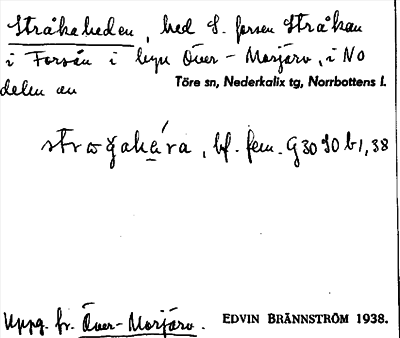 Stråkaheden, hed S. forsen Stråkan
i Forsån i byn Över-Morjärv, i NO
Töre sn, Nederkalix tg, Norrbottens l.
delen av
bf. fem. G 30 90 b 1, 38
Uppg. fr. Över-Morjärv.
EDVIN BRÄNNSTRÖM 1938.